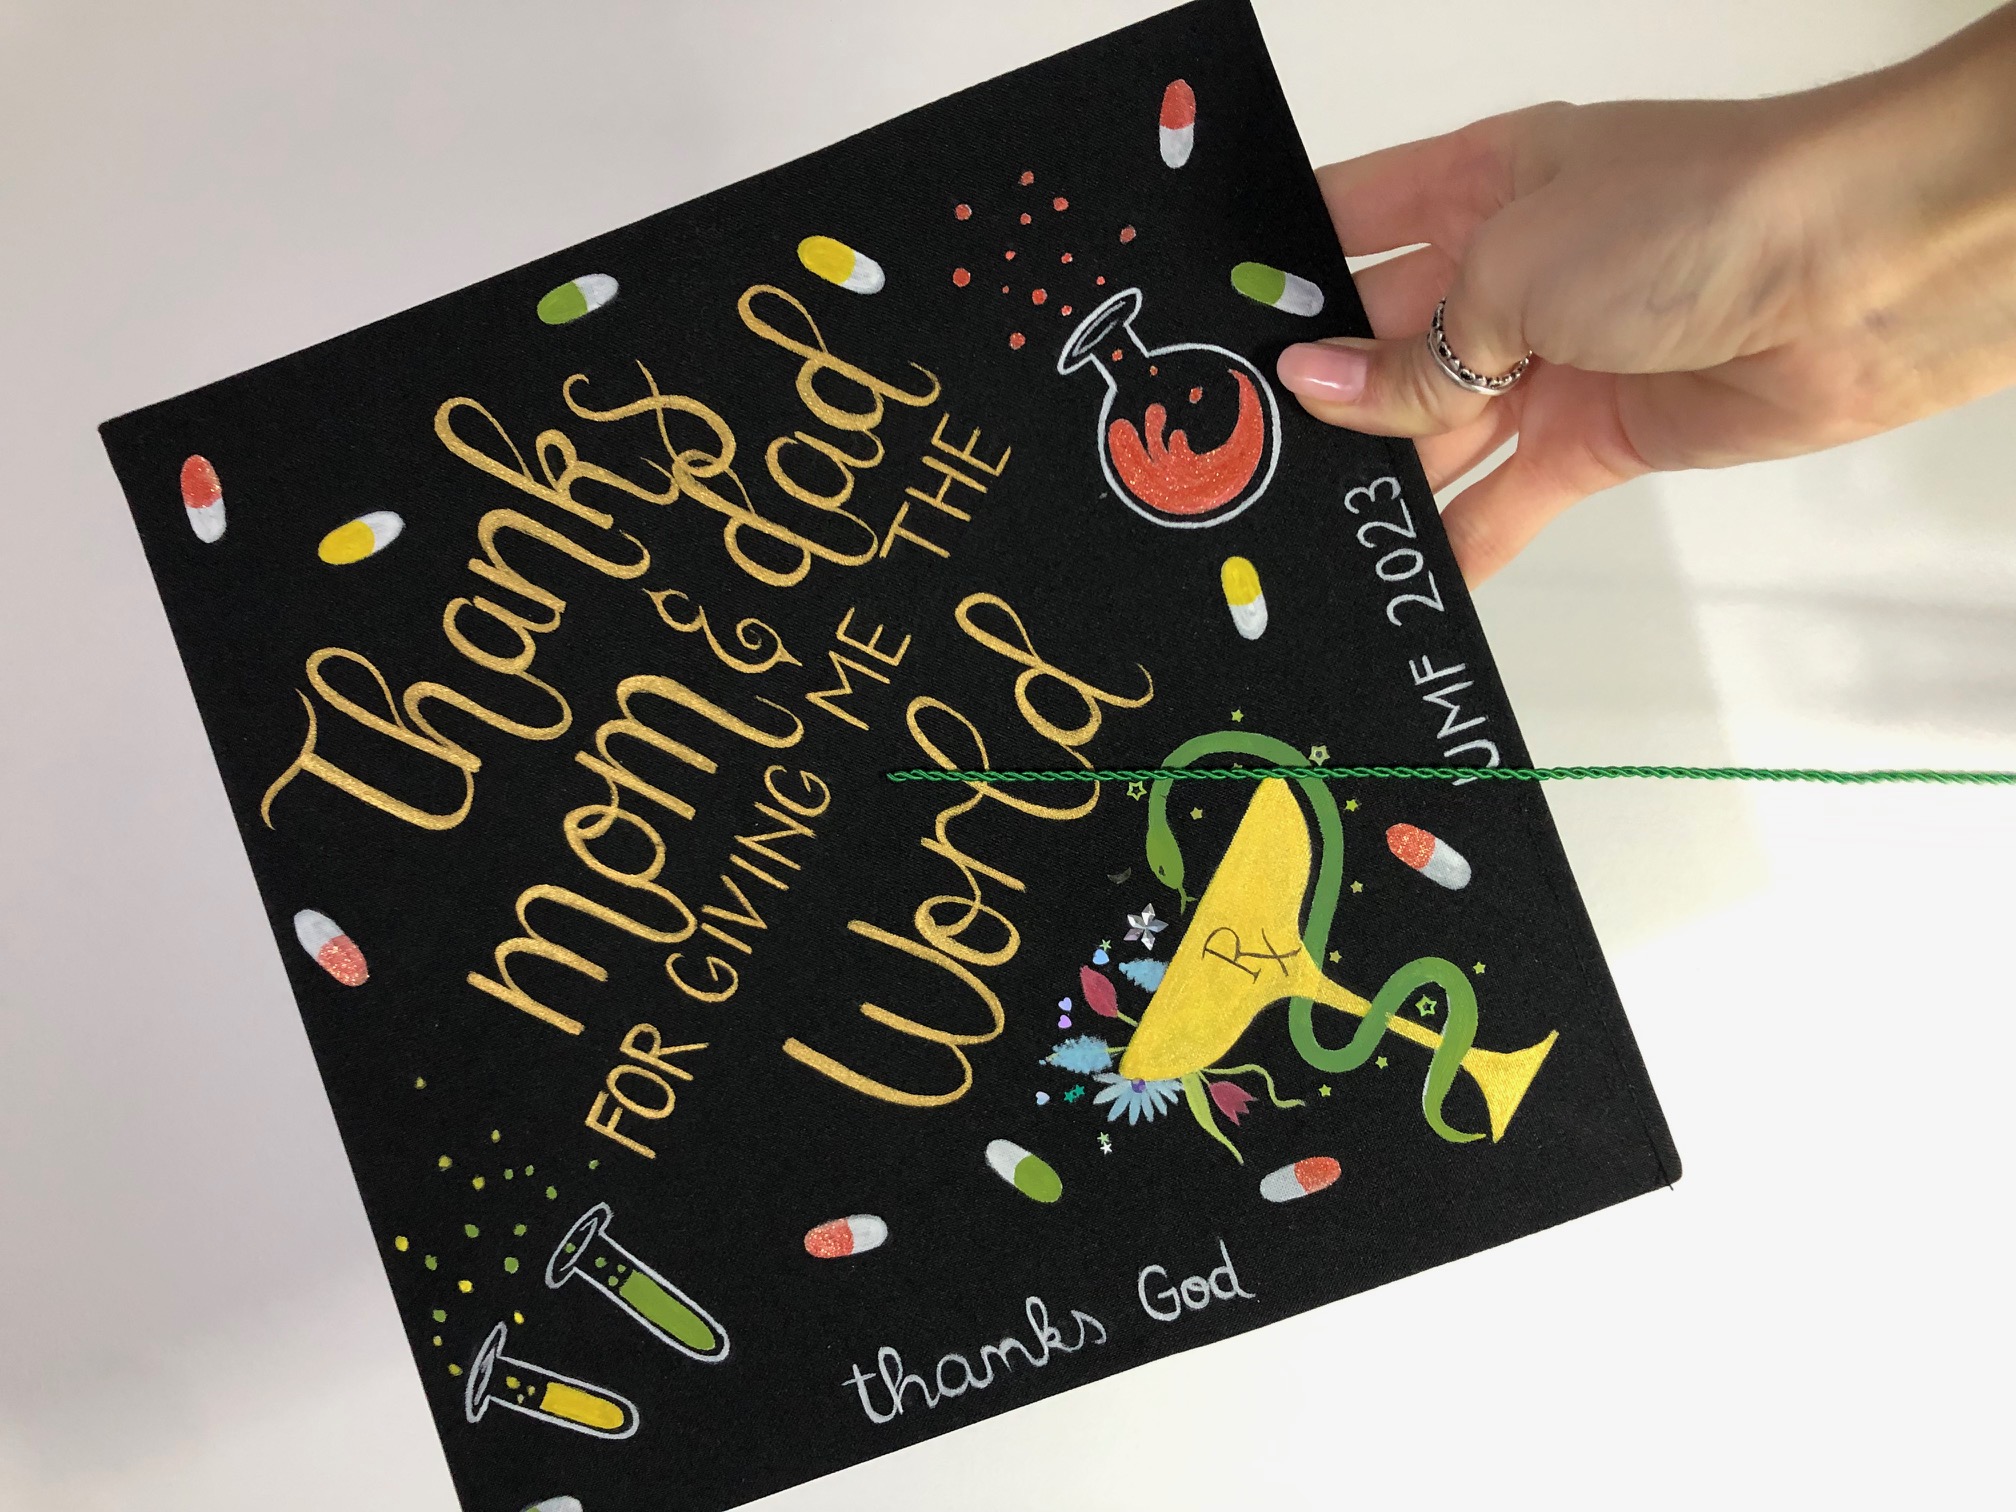 Thanks
mom & dad
FOR GIVING ME THE
World
thanks God
Rx
UMF 2023